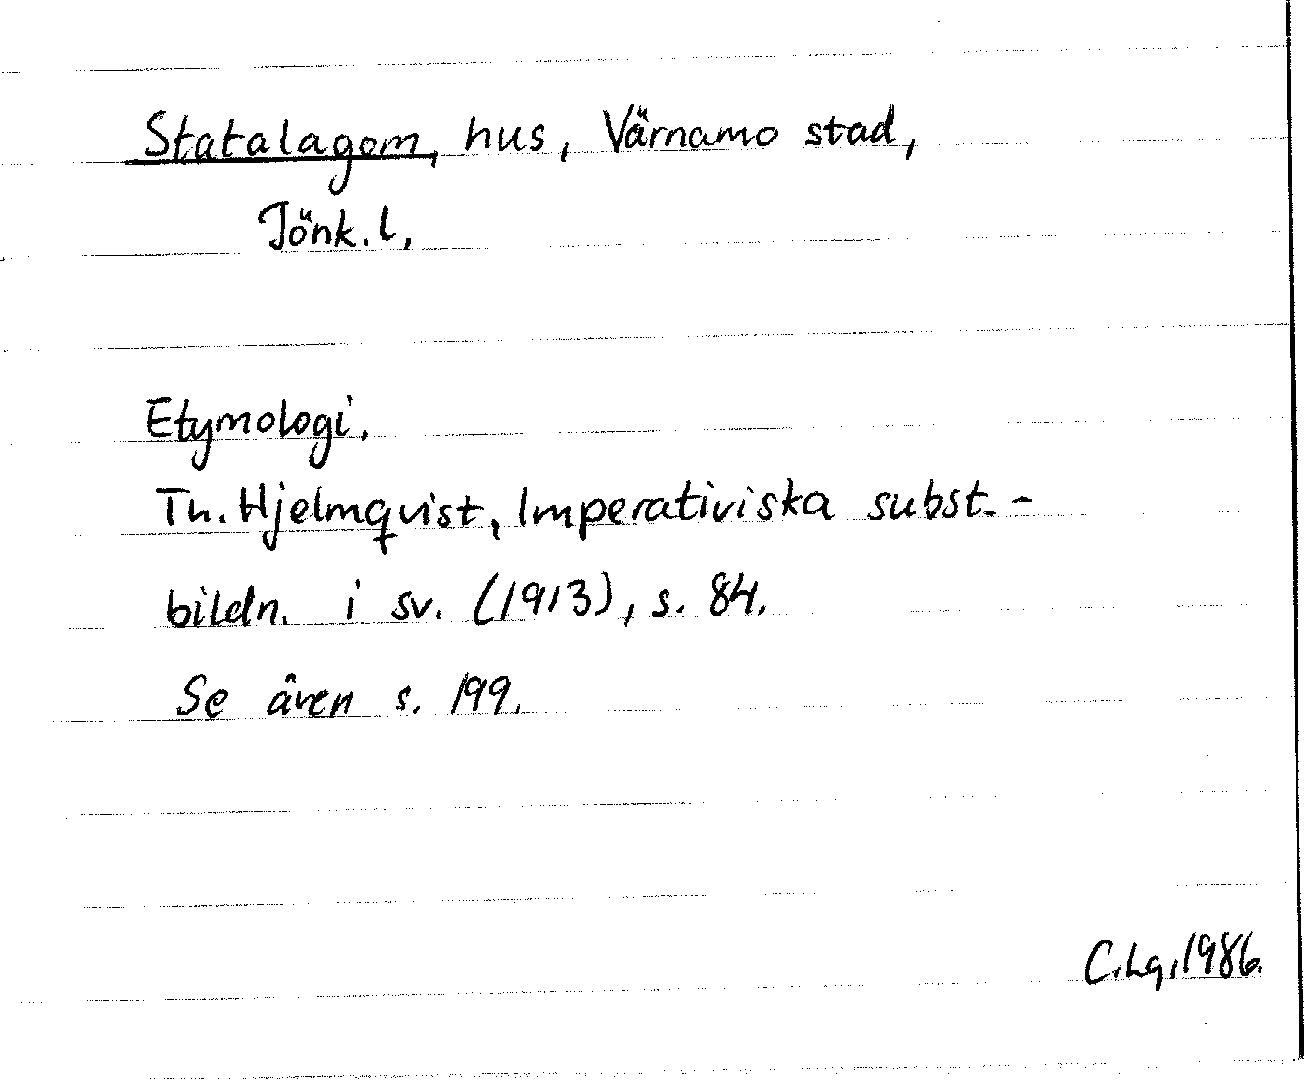 Statalagom, hus, Värnamo stad,
Jönk. l.
Etymologi.
Th. Hjelmqvist, Imperativiska subst.-
bildn. i sv. (1913), s. 84.
Se även s. 199.
C.Lg. 1986.